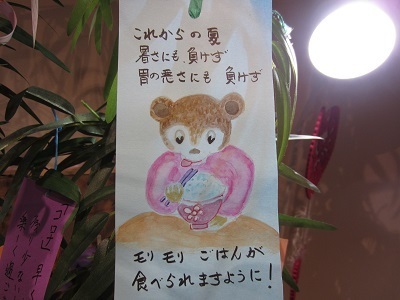 これからの夏
暑さにも、負けず
胃の悪さにも 負けず
モリモリ ごはんが
食べられますように!
コロナ 早く